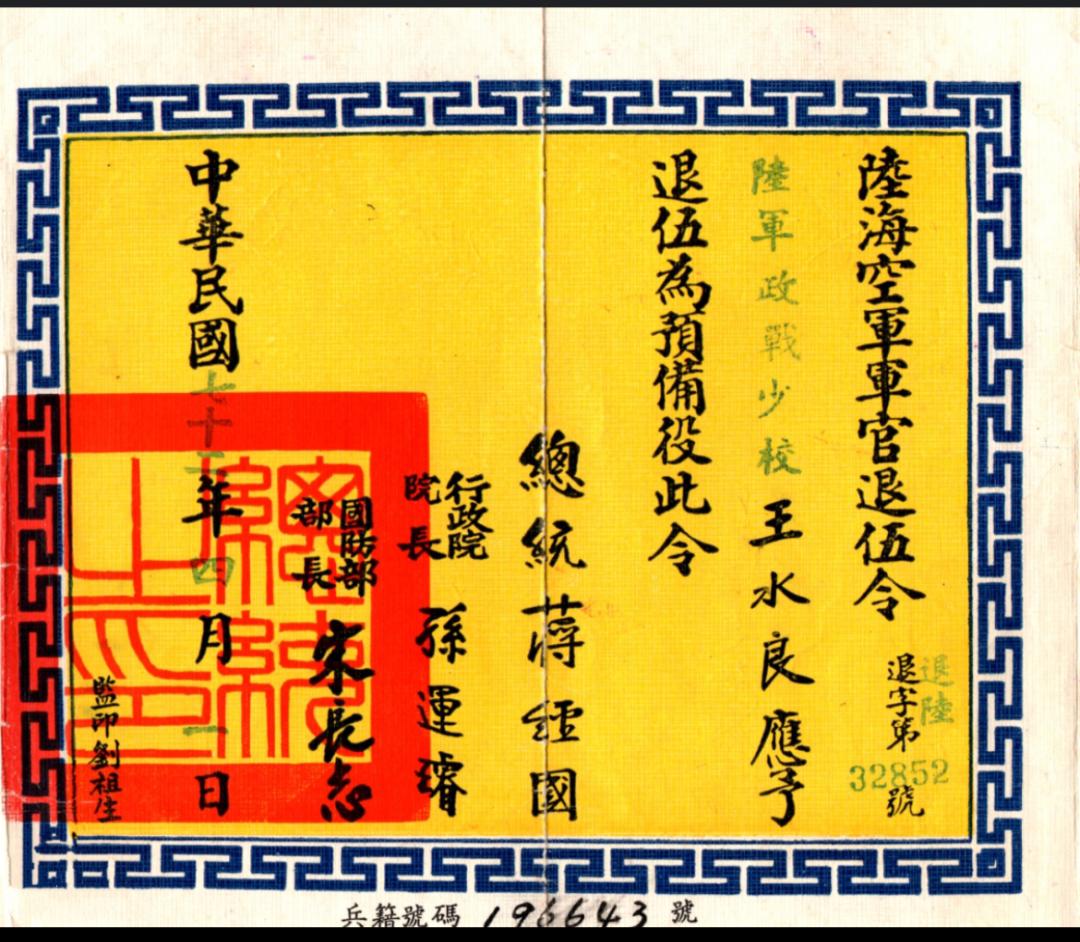 陸海空軍軍官退伍令
退陸
退字第32852號
陸軍政戰少校王水良應予
退伍為預備役此令
總統蔣經國
行政院
院長
孫運璿
國防部
部長
宋長志
中華民國七十年四月一日
總統
之印
監印劉祖生
兵籍號碼196643號